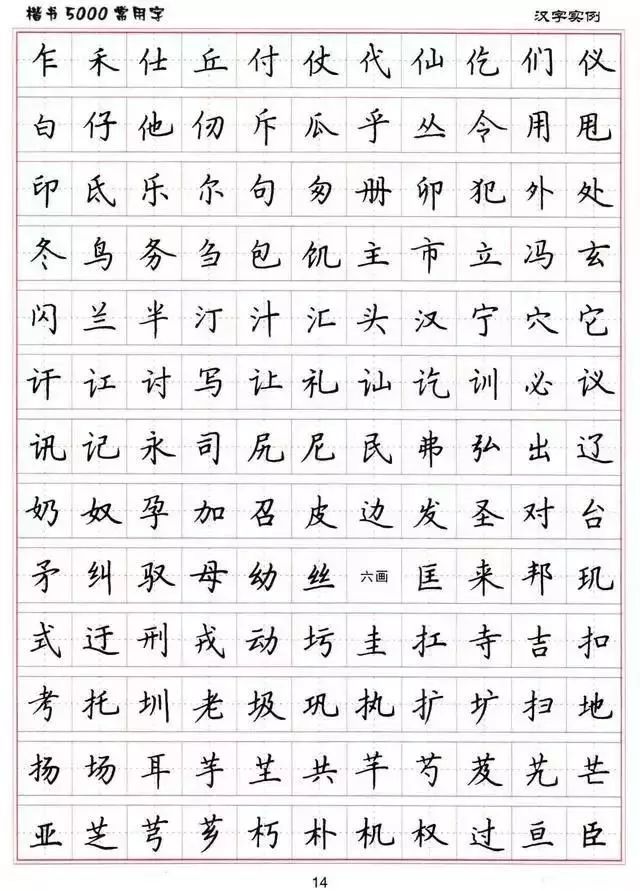 楷书5000常用字 汉字实例
乍禾仕丘付仗代仙仡们仪
白仔他仞斥瓜乎丛令用甩
印氐乐尔句匆册卯犯外处
冬鸟务刍包饥主市立冯玄
闪兰半汀汁汇头汉宁穴它
讦讧讨写让礼讪讫训必议
讯记永司尻尼民弗弘出辽
奶奴孕加召皮边发圣对台
矛纠驭母幼丝六画匡耒邦玑
式迂刑戎动圬圭扛寺吉扣
考托圳老圾巩执扩圹扫地
扬场耳芋芏共芊芍芨艽芒
亚芝芎芗朽朴机权过亘臣
14